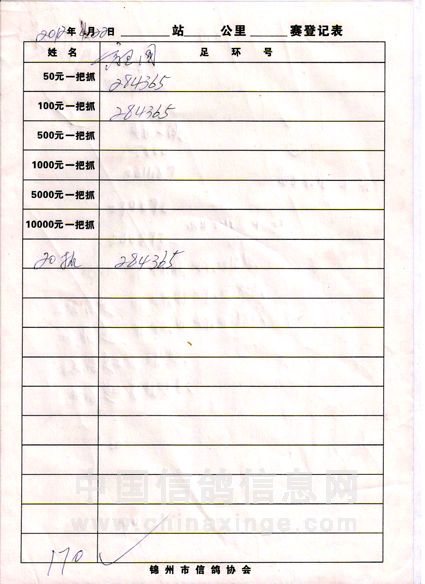 2012年4月22日 站 公里 赛登记表
姓名 足环号
50元一把抓 284365
100元一把抓 284365
500元一把抓
1000元一把抓
5000元一把抓
10000元一把抓
284365
中国信鸽信息网
www.chinaxinge.com
170 ✓
锦州市信鸽协会